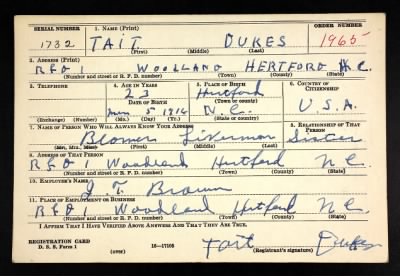 SERIAL NUMBER 1. NAME (Print) ORDER NUMBER
1732 TAIT DUKES 1965
(First) (Middle) (Last)
2. ADDRESS (Print)
RFD 1 WOODLAND HERTFORD N.C.
(Number and street or R. F. D. number) (Town) (County) (State)
3. TELEPHONE 4. AGE IN YEARS 5. PLACE OF BIRTH 6. COUNTRY OF CITIZENSHIP
23 Hertford
DATE OF BIRTH (Town or county)
5 1916 N.C. U.S.A.
(Exchange) (Number) (Mo.) (Day) (Yr.) (State or country)
7. NAME OF PERSON WHO WILL ALWAYS KNOW YOUR ADDRESS 8. RELATIONSHIP OF THAT PERSON
Liverman Sister
(Mr., Mrs., Miss) (First) (Middle) (Last)
9. ADDRESS OF THAT PERSON
RFD 1 Woodland Hertford N C
(Number and street or R. F. D. number) (Town) (County) (State)
10. EMPLOYER'S NAME
J. T. Brown
11. PLACE OF EMPLOYMENT OR BUSINESS
RFD 1 Woodland Hertford N C
(Number and street or R. F. D. number) (Town) (County) (State)
I AFFIRM THAT I HAVE VERIFIED ABOVE ANSWERS AND THAT THEY ARE TRUE.
REGISTRATION CARD
D. S. S. Form 1 (over) 16—17105 Tait Dukes
(Registrant's signature)